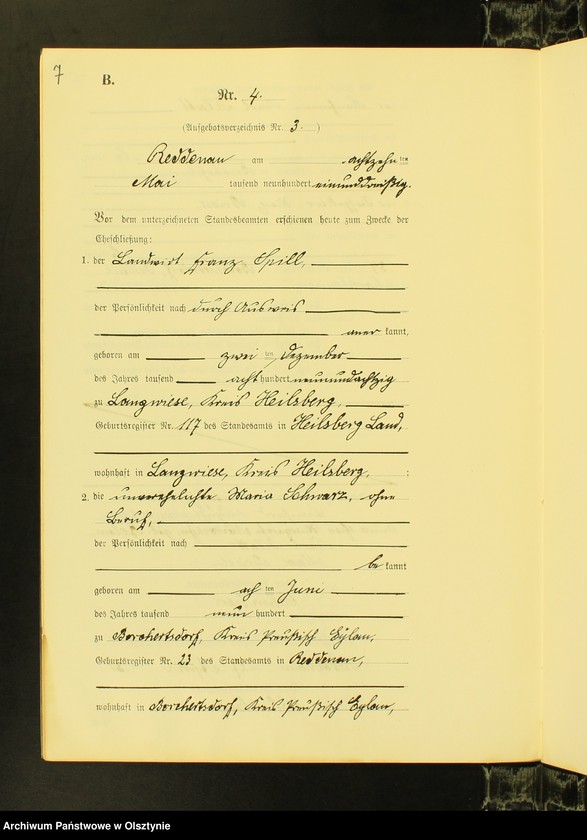 7
B.
Nr. 4.
(Aufgebotsverzeichnis Nr. 3.)
Reddenau am achtzehnten
Mai tausend neunhundert einunddreißig.
Vor dem unterzeichneten Standesbeamten erschienen heute zum Zwecke der
Eheschließung:
1. der Landwirt Franz Spill,
der Persönlichkeit nach durch Ausweis
anerkannt,
geboren am zweiten Dezember
des Jahres tausend achthundert neunundachtzig
zu Langwiese, Kreis Heilsberg,
Geburtsregister Nr. 117 des Standesamts in Heilsberg Land,
wohnhaft in Langwiese, Kreis Heilsberg, ;
2. die unverehelichte Maria Schwarz, ohne
Beruf,
der Persönlichkeit nach
bekannt
geboren am achten Juni
des Jahres tausend neunhundert
zu Borchertsdorf, Kreis Preußisch Eylau,
Geburtsregister Nr. 23 des Standesamts in Reddenau,
wohnhaft in Borchertsdorf, Kreis Preußisch Eylau,
Archiwum Państwowe w Olsztynie